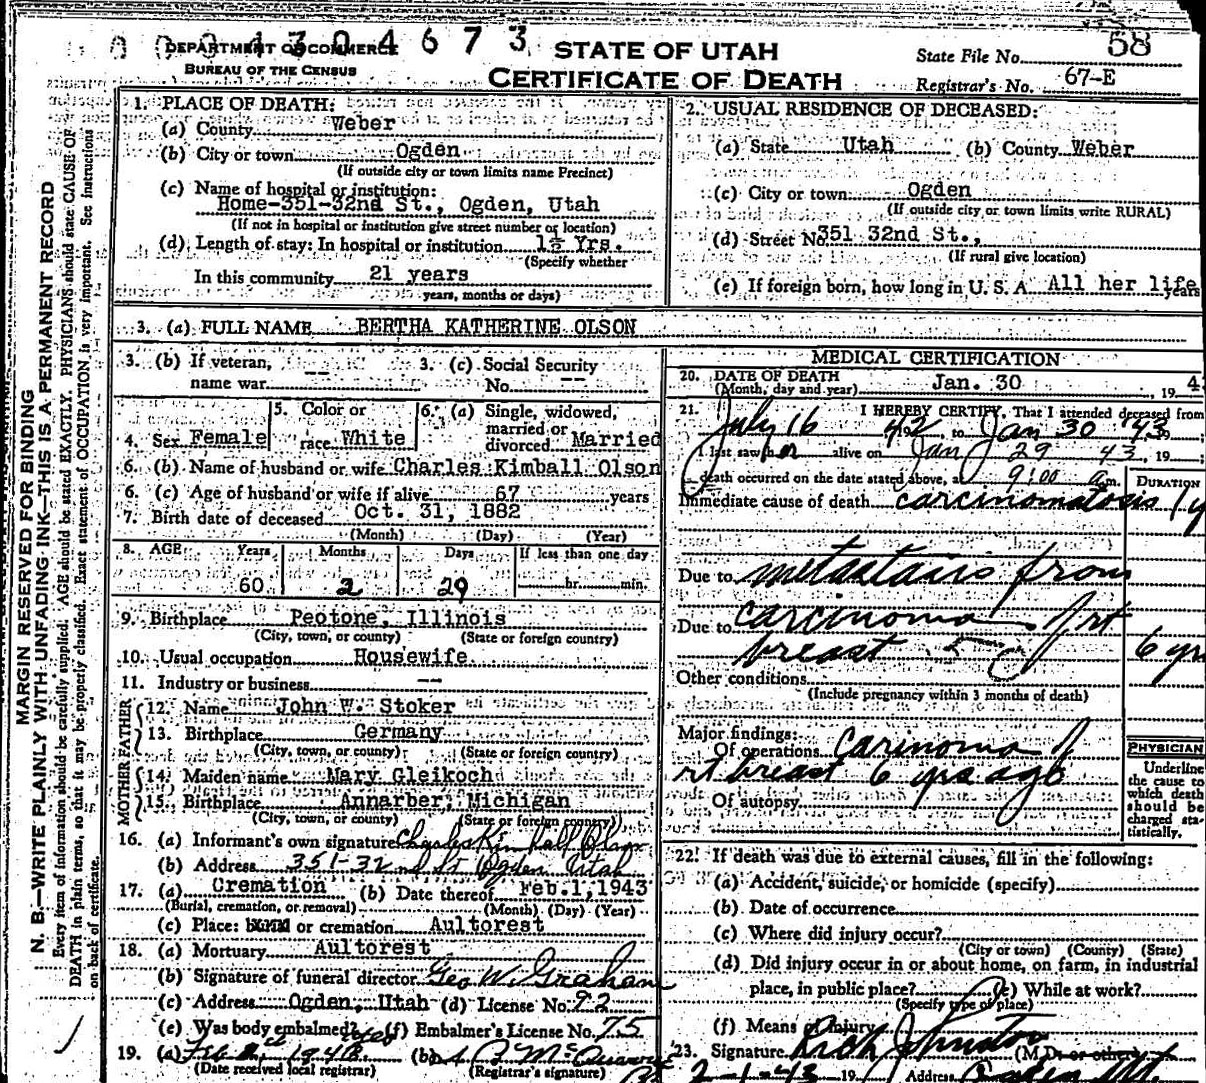 0004304673
DEPARTMENT OF COMMERCE
BUREAU OF THE CENSUS
STATE OF UTAH
CERTIFICATE OF DEATH
State File No. 58
Registrar's No. 67-E
MARGIN RESERVED FOR BINDING
N. B.—WRITE PLAINLY WITH UNFADING INK—THIS IS A PERMANENT RECORD
Every item of information should be carefully supplied. AGE should be stated EXACTLY. PHYSICIANS should state CAUSE OF
DEATH in plain terms, so that it may be properly classified. Exact statement of OCCUPATION is very important. See instructions
on back of certificate.
1. PLACE OF DEATH:
(a) County Weber
(b) City or town Ogden
(If outside city or town limits name Precinct)
(c) Name of hospital or institution:
Home-351-32nd St., Ogden, Utah
(If not in hospital or institution give street number or location)
(d) Length of stay: In hospital or institution 1½ Yrs.
(Specify whether
In this community 21 years
years, months or days)
2. USUAL RESIDENCE OF DECEASED:
(a) State Utah (b) County Weber
(c) City or town Ogden
(If outside city or town limits write RURAL)
(d) Street No. 351 32nd St.,
(If rural give location)
(e) If foreign born, how long in U. S. A. All her life years
3. (a) FULL NAME BERTHA KATHERINE OLSON
3. (b) If veteran, name war -- 3. (c) Social Security No. --
4. Sex Female 5. Color or race White 6. (a) Single, widowed, married or divorced Married
6. (b) Name of husband or wife Charles Kimball Olson
6. (c) Age of husband or wife if alive 67 years
7. Birth date of deceased Oct. 31, 1882
(Month) (Day) (Year)
8. AGE Years Months Days If less than one day
60 2 29 hr. min.
9. Birthplace Peotone, Illinois
(City, town, or county) (State or foreign country)
10. Usual occupation Housewife
11. Industry or business --
FATHER
12. Name John W. Stoker
13. Birthplace Germany
(City, town, or county) (State or foreign country)
MOTHER
14. Maiden name Mary Gleikoch
15. Birthplace Annarber, Michigan
(City, town, or county) (State or foreign country)
16. (a) Informant's own signature Charles Kimball Olson
(b) Address 351-32nd St Ogden Utah
17. (a) Cremation (b) Date thereof Feb.1,1943
(Burial, cremation, or removal) (Month) (Day) (Year)
(c) Place: burial or cremation Aultorest
18. (a) Mortuary Aultorest
(b) Signature of funeral director Geo W. Graham
(c) Address Ogden, Utah (d) License No. 92
(e) Was body embalmed? (f) Embalmer's License No. 75
19. (a) (b)
(Date received local registrar) (Registrar's signature)
MEDICAL CERTIFICATION
20. DATE OF DEATH Jan. 30, 19 4
(Month, day and year)
21. I HEREBY CERTIFY, That I attended deceased from
July 16 42, to Jan 30 '43
I last saw her alive on Jan 29 43, 19
death occurred on the date stated above, at 9:00 a.m. DURATION
Immediate cause of death carcinomatosis 1 y
Due to metastasis from
Due to carcinoma of rt
breast 50 6 yrs
Other conditions
(Include pregnancy within 3 months of death)
Major findings:
Of operations carinoma of
rt breast 6 yrs ago
Of autopsy
PHYSICIAN
Underline
the cause to
which death
should be
charged sta-
tistically.
22. If death was due to external causes, fill in the following:
(a) Accident, suicide, or homicide (specify)
(b) Date of occurrence
(c) Where did injury occur?
(City or town) (County) (State)
(d) Did injury occur in or about home, on farm, in industrial
place, in public place? (e) While at work?
(Specify type of place)
(f) Means of Injury
23. Signature Rich Johnston (M.D. or other)
2-1-43 19 Address